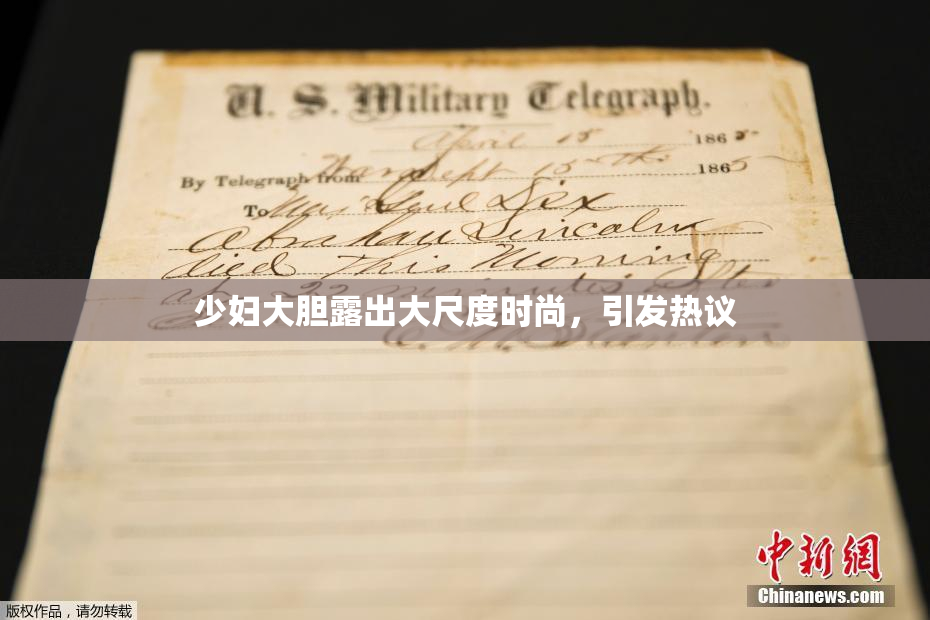 U. S. Military Telegraph.
April 15 1865
By Telegraph from War Dept 15th 1865
To Maj Genl Dix
Abraham Lincoln
died This Morning
at 22 minutes after
少妇大胆露出大尺度时尚，引发热议
E. M. Stanton
中新网
Chinanews.com
版权作品，请勿转载